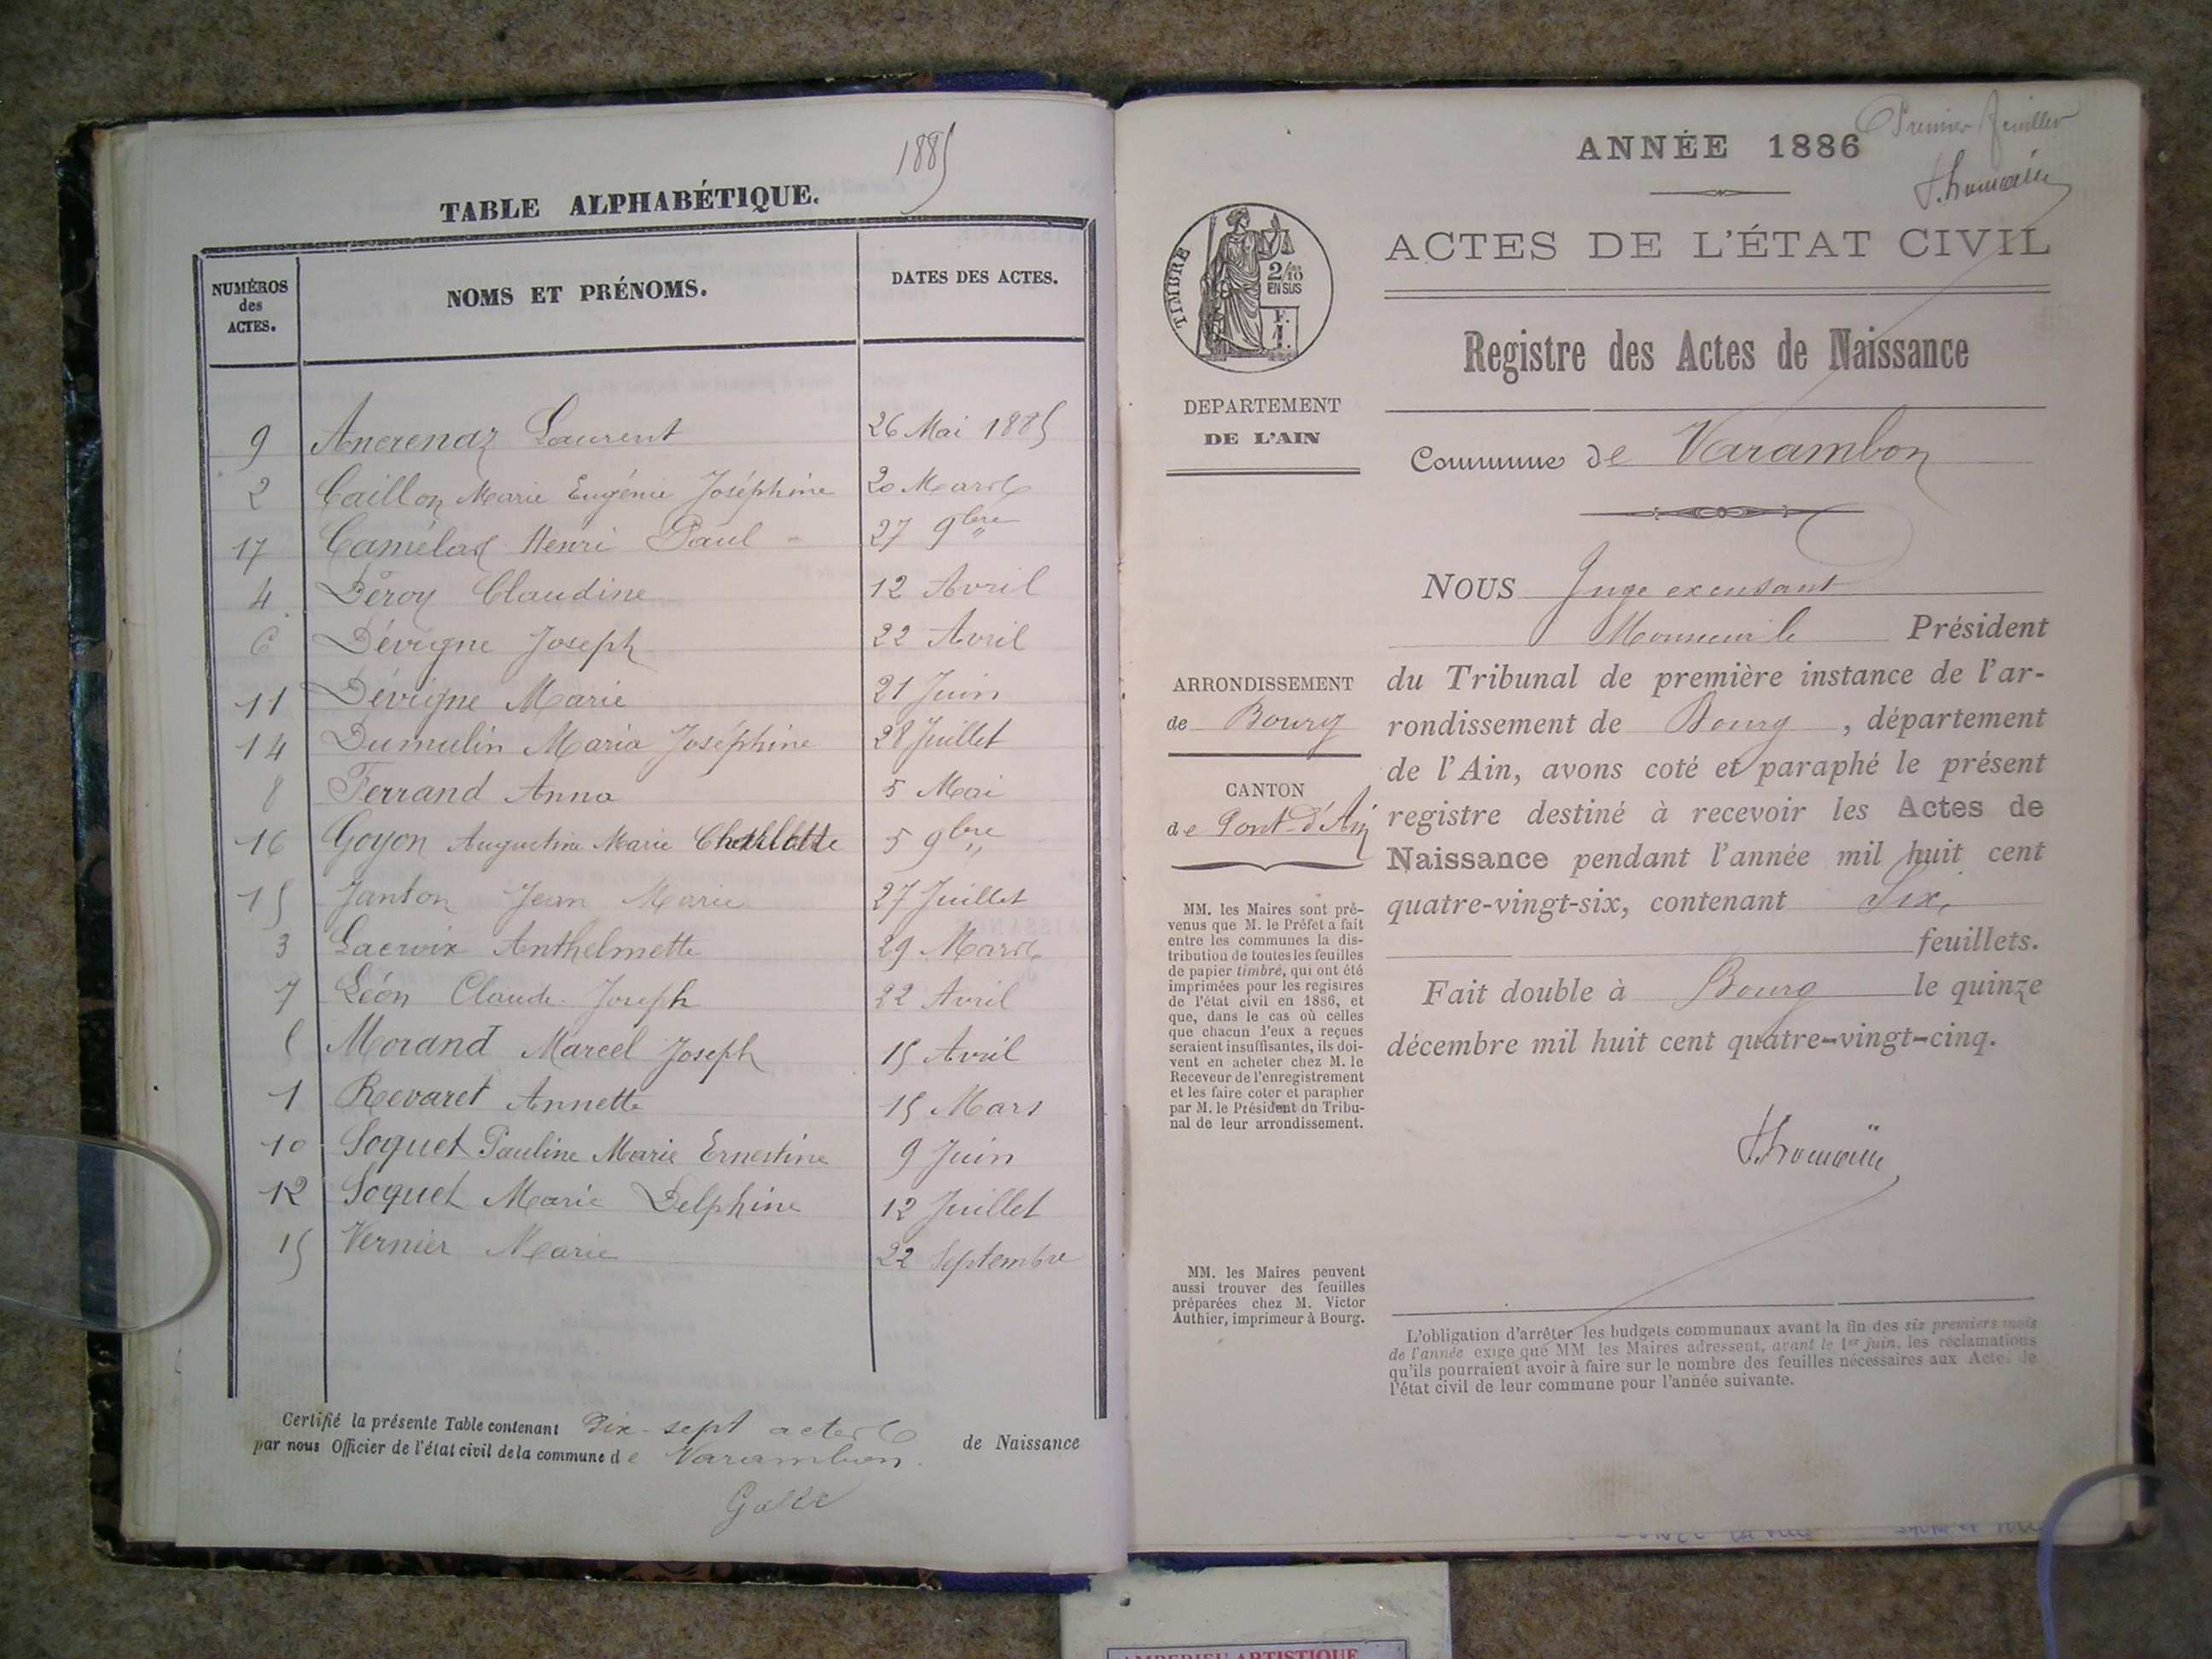 1885
TABLE ALPHABÉTIQUE.
NUMÉROS des ACTES.
NOMS ET PRÉNOMS.
DATES DES ACTES.
9 Ancrenaz Laurent 26 Mai 1885
2 Caillon Marie Eugénie Joséphine 20 Mars
17 Camélas Henri Paul 27 9bre
4 Déroy Claudine 12 Avril
6 Dévigne Joseph 22 Avril
11 Dévigne Marie 21 Juin
14 Dumulin Maria Joséphine 28 Juillet
8 Ferrand Anna 5 Mai
16 Goyon Augustine Marie Charlotte 5 9bre
15 Janton Jean Marie 27 Juillet
3 Lacroix Anthelmette 29 Mars
7 Léon Claude Joseph 22 Avril
5 Morand Marcel Joseph 15 Avril
1 Revaret Annette 15 Mars
10 Soquet Pauline Marie Ernestine 9 Juin
12 Soquet Marie Delphine 12 Juillet
15 Vernier Marie 22 Septembre
Certifié la présente Table contenant Dix-sept actes de Naissance
par nous Officier de l'état civil de la commune de Varambon.
Premier feuillet
ANNÉE 1886
ACTES DE L'ÉTAT CIVIL
TIMBRE
2/10 EN SUS
F. 1.
Registre des Actes de Naissance
DEPARTEMENT
DE L'AIN
Commune de Varambon
NOUS Juge excusant
Monsieur le Président
ARRONDISSEMENT
de Bourg
CANTON
de Pont-d'Ain
du Tribunal de première instance de l'ar-
rondissement de Bourg, département
de l'Ain, avons coté et paraphé le présent
registre destiné à recevoir les Actes de
Naissance pendant l'année mil huit cent
quatre-vingt-six, contenant Six,
feuillets.
Fait double à Bourg le quinze
décembre mil huit cent quatre-vingt-cinq.
MM. les Maires sont pré-
venus que M. le Préfet a fait
entre les communes la dis-
tribution de toutes les feuilles
de papier timbré, qui ont été
imprimées pour les registres
de l'état civil en 1886, et
que, dans le cas où celles
que chacun d'eux a reçues
seraient insuffisantes, ils doi-
vent en acheter chez M. le
Receveur de l'enregistrement
et les faire coter et parapher
par M. le Président du Tribu-
nal de leur arrondissement.
MM. les Maires peuvent
aussi trouver des feuilles
préparées chez M. Victor
Authier, imprimeur à Bourg.
L'obligation d'arrêter les budgets communaux avant la fin des six premiers mois
de l'année exige que MM les Maires adressent, avant le 1er juin, les réclamations
qu'ils pourraient avoir à faire sur le nombre des feuilles nécessaires aux Actes de
l'état civil de leur commune pour l'année suivante.